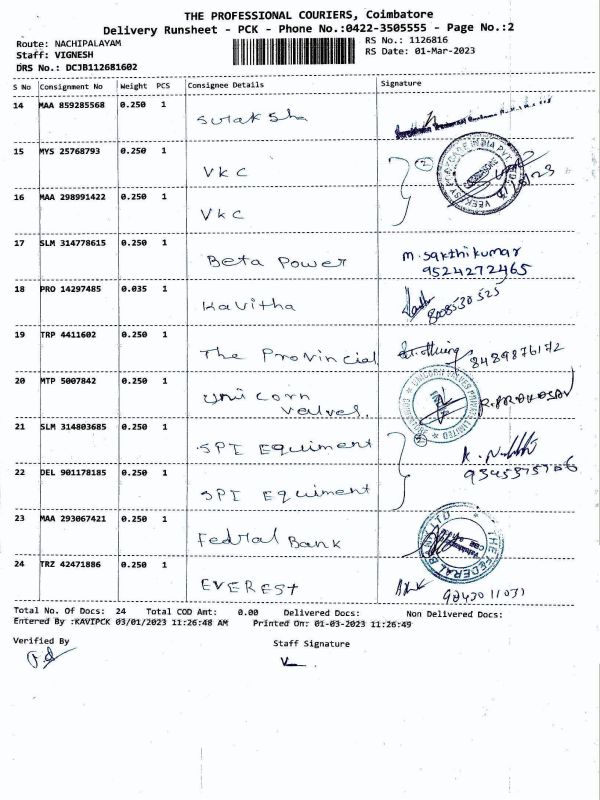 THE PROFESSIONAL COURIERS, Coimbatore
Delivery Runsheet - PCK - Phone No.:0422-3505555 - Page No.:2
Route: NACHIPALAYAM
RS No.: 1126816
Staff: VIGNESH
RS Date: 01-Mar-2023
DRS No.: DCJB112681602
S No Consignment No Weight PCS Consignee Details Signature
14 MAA 859285568 0.250 1
Surak sha
15 MYS 25768793 0.250 1
VKC
16 MAA 298991422 0.250 1
VKC
17 SLM 314778615 0.250 1
Beta Power M. Sakthi kumar
9524272465
18 PRO 14297485 0.035 1
Kavitha 8008530525
19 TRP 4411602 0.250 1
The Provincial 8489876172
20 MTP 5007842 0.250 1
Unicorn
Valves.
UNICORN VALVES PRIVATE LIMITED
21 SLM 314803685 0.250 1
SPI Equiment
22 DEL 901178185 0.250 1
SPI Equiment
23 MAA 293067421 0.250 1
Fedral Bank
THE FEDERAL BANK LTD
24 TRZ 42471886 0.250 1
EVEREST 9843011031
Total No. Of Docs: 24 Total COD Amt: 0.00 Delivered Docs: Non Delivered Docs:
Entered By :KAVIPCK 03/01/2023 11:26:48 AM Printed On: 01-03-2023 11:26:49
Verified By
Staff Signature